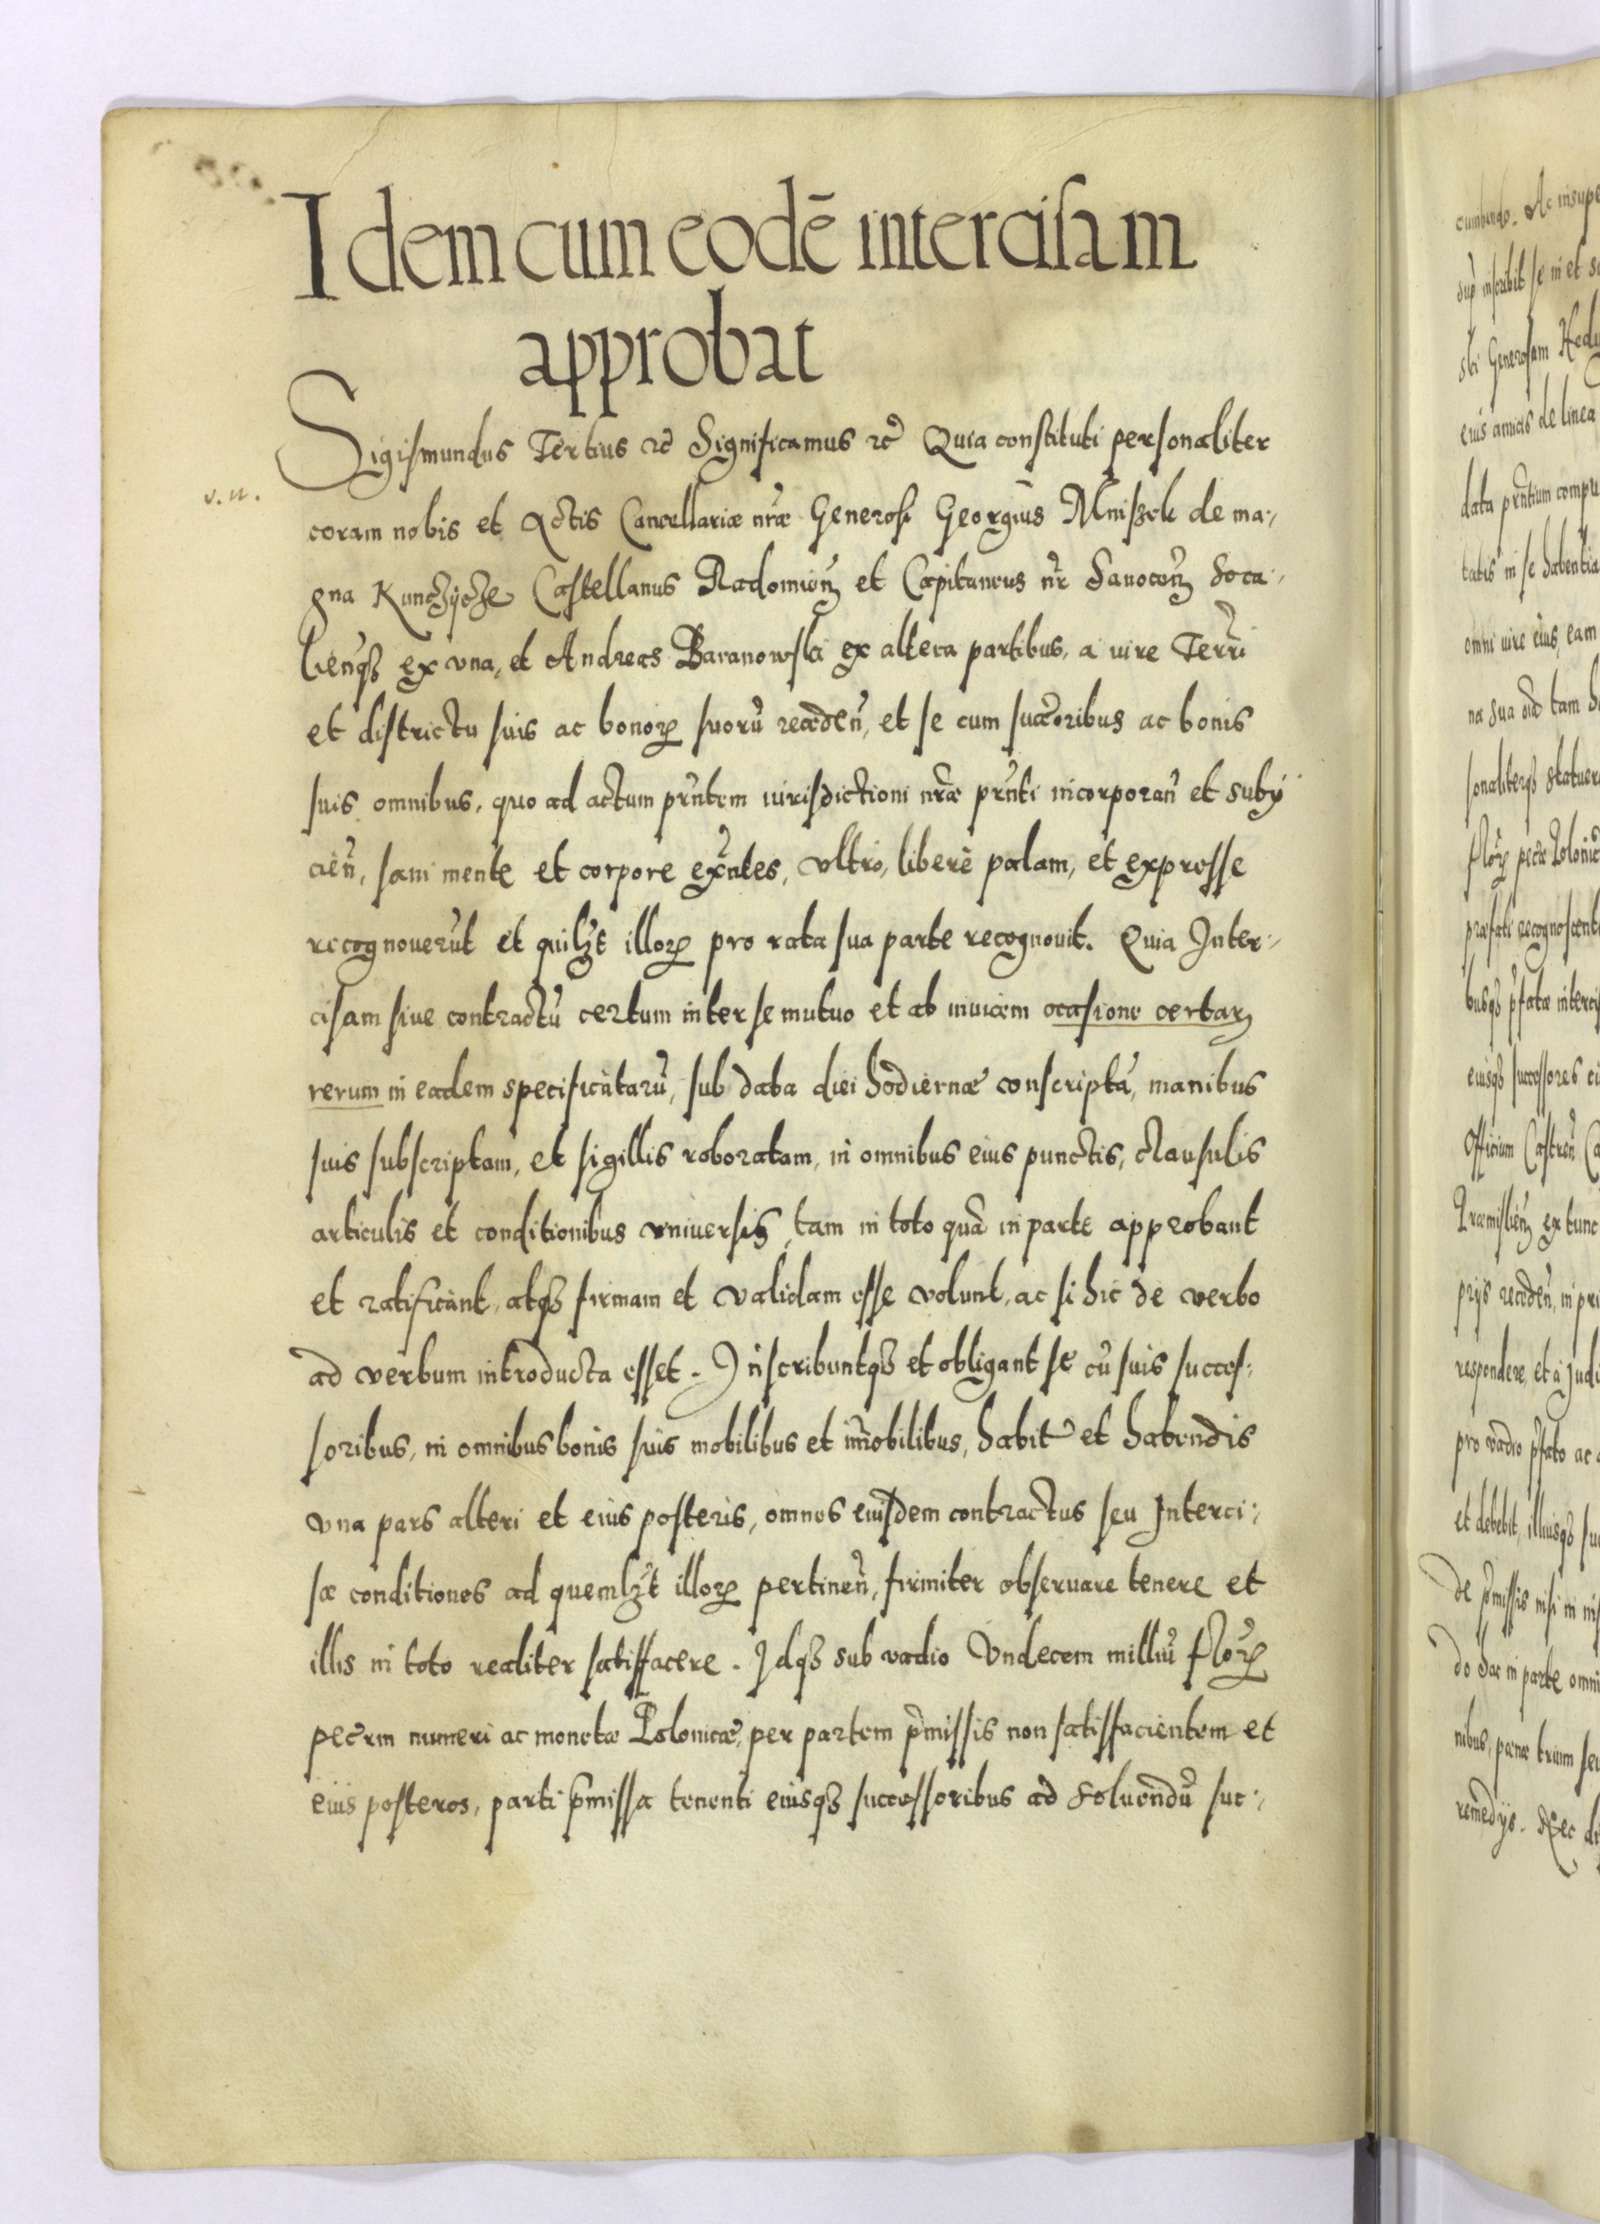 Idem cum eodē intercisam
approbat
Sigismundus Tertius etc̄ Significamus etc̄ Quia constituti personaliter
v. n.
coram nobis et Actis Cancellariæ nr̄æ Generosi Georgius Mniszek de ma-
gna Kunczycze Castellanus Radomień et Capitaneus nr̄ Sanocen̄ Soca-
lien̄qꝫ ex una, et Andreas Baranowski ex altera partibus, a iure Terr̄i
et districtu suis ac bonoꝝ suorū receden̄, et se cum succoribus ac bonis
suis omnibus, quo ad actum pr̄ntem iurisdictioni nr̄æ pr̄nti incorporan̄ et subij
cien̄, sani mente et corpore exn̄tes, ultro, liberè palam, et expresse
recognoverūt et quilꝫt illoꝝ pro rata sua parte recognovit. Quia Inter-
cisam sive contractū certum inter se mutuo et ab invicem occasione certaꝝ
rerum in eadem specificatarū, sub data diei hodiernæ conscriptā, manibus
suis subscriptam, et sigillis roboratam, in omnibus eius punctis, clausulis
articulis et conditionibus universis, tam in toto quā in parte approbant
et ratificant, atqꝫ firmam et validam esse volunt, ac si hic de verbo
ad verbum introducta esset. Inscribuntqꝫ et obligant se cū suis succes-
soribus, in omnibus bonis suis mobilibus et im̄obilibus, habit̄ et habendis
una pars alteri et eius posteris, omnes eiusdem contractus seu Interci-
sæ conditiones ad quemlꝫt illoꝝ pertinen̄, firmiter observare tenere et
illis in toto realiter satisfacere. Idqꝫ sub vadio Undecem milliū floꝝ
pecrm numeri ac monetæ Polonicæ, per partem p̄missis non satisfacientem et
eius posteros, parti p̄missa tenenti eiusqꝫ successoribus ad solvendū suc-
cumbendo. Ac insupe
inscribit se in et s
sbi Generosam Hedu
eius amicis de linea
data pr̄ntium compu
tatis in se habentia
omni iure eius, eam
na sua oīa tam h
sonaliterqꝫ statuer
floꝝ pecæ Polonic
præfati recognoscent
busqꝫ p̄fatæ interci
eiusqꝫ successores ci
Officium Castren̄ Ca
Præmislien̄ ex tunc
prijs receden̄, in pri
respondere, et à Judi
pro vadio p̄fato ac
et debebit, illiusqꝫ su
de p̄missis nisi in
do hac in parte omni
nibus, pœnæ trium seu
remedijs. Nec di